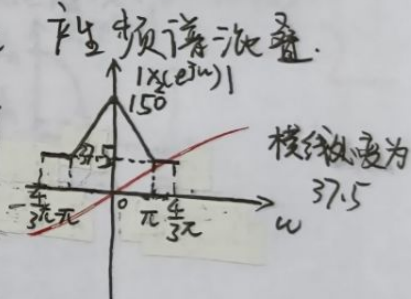 产生频谱混叠.
|X₂(e^{jω})|
150
37.5
-4/3π -π 0 π 4/3π ω
横线处高度为
37.5